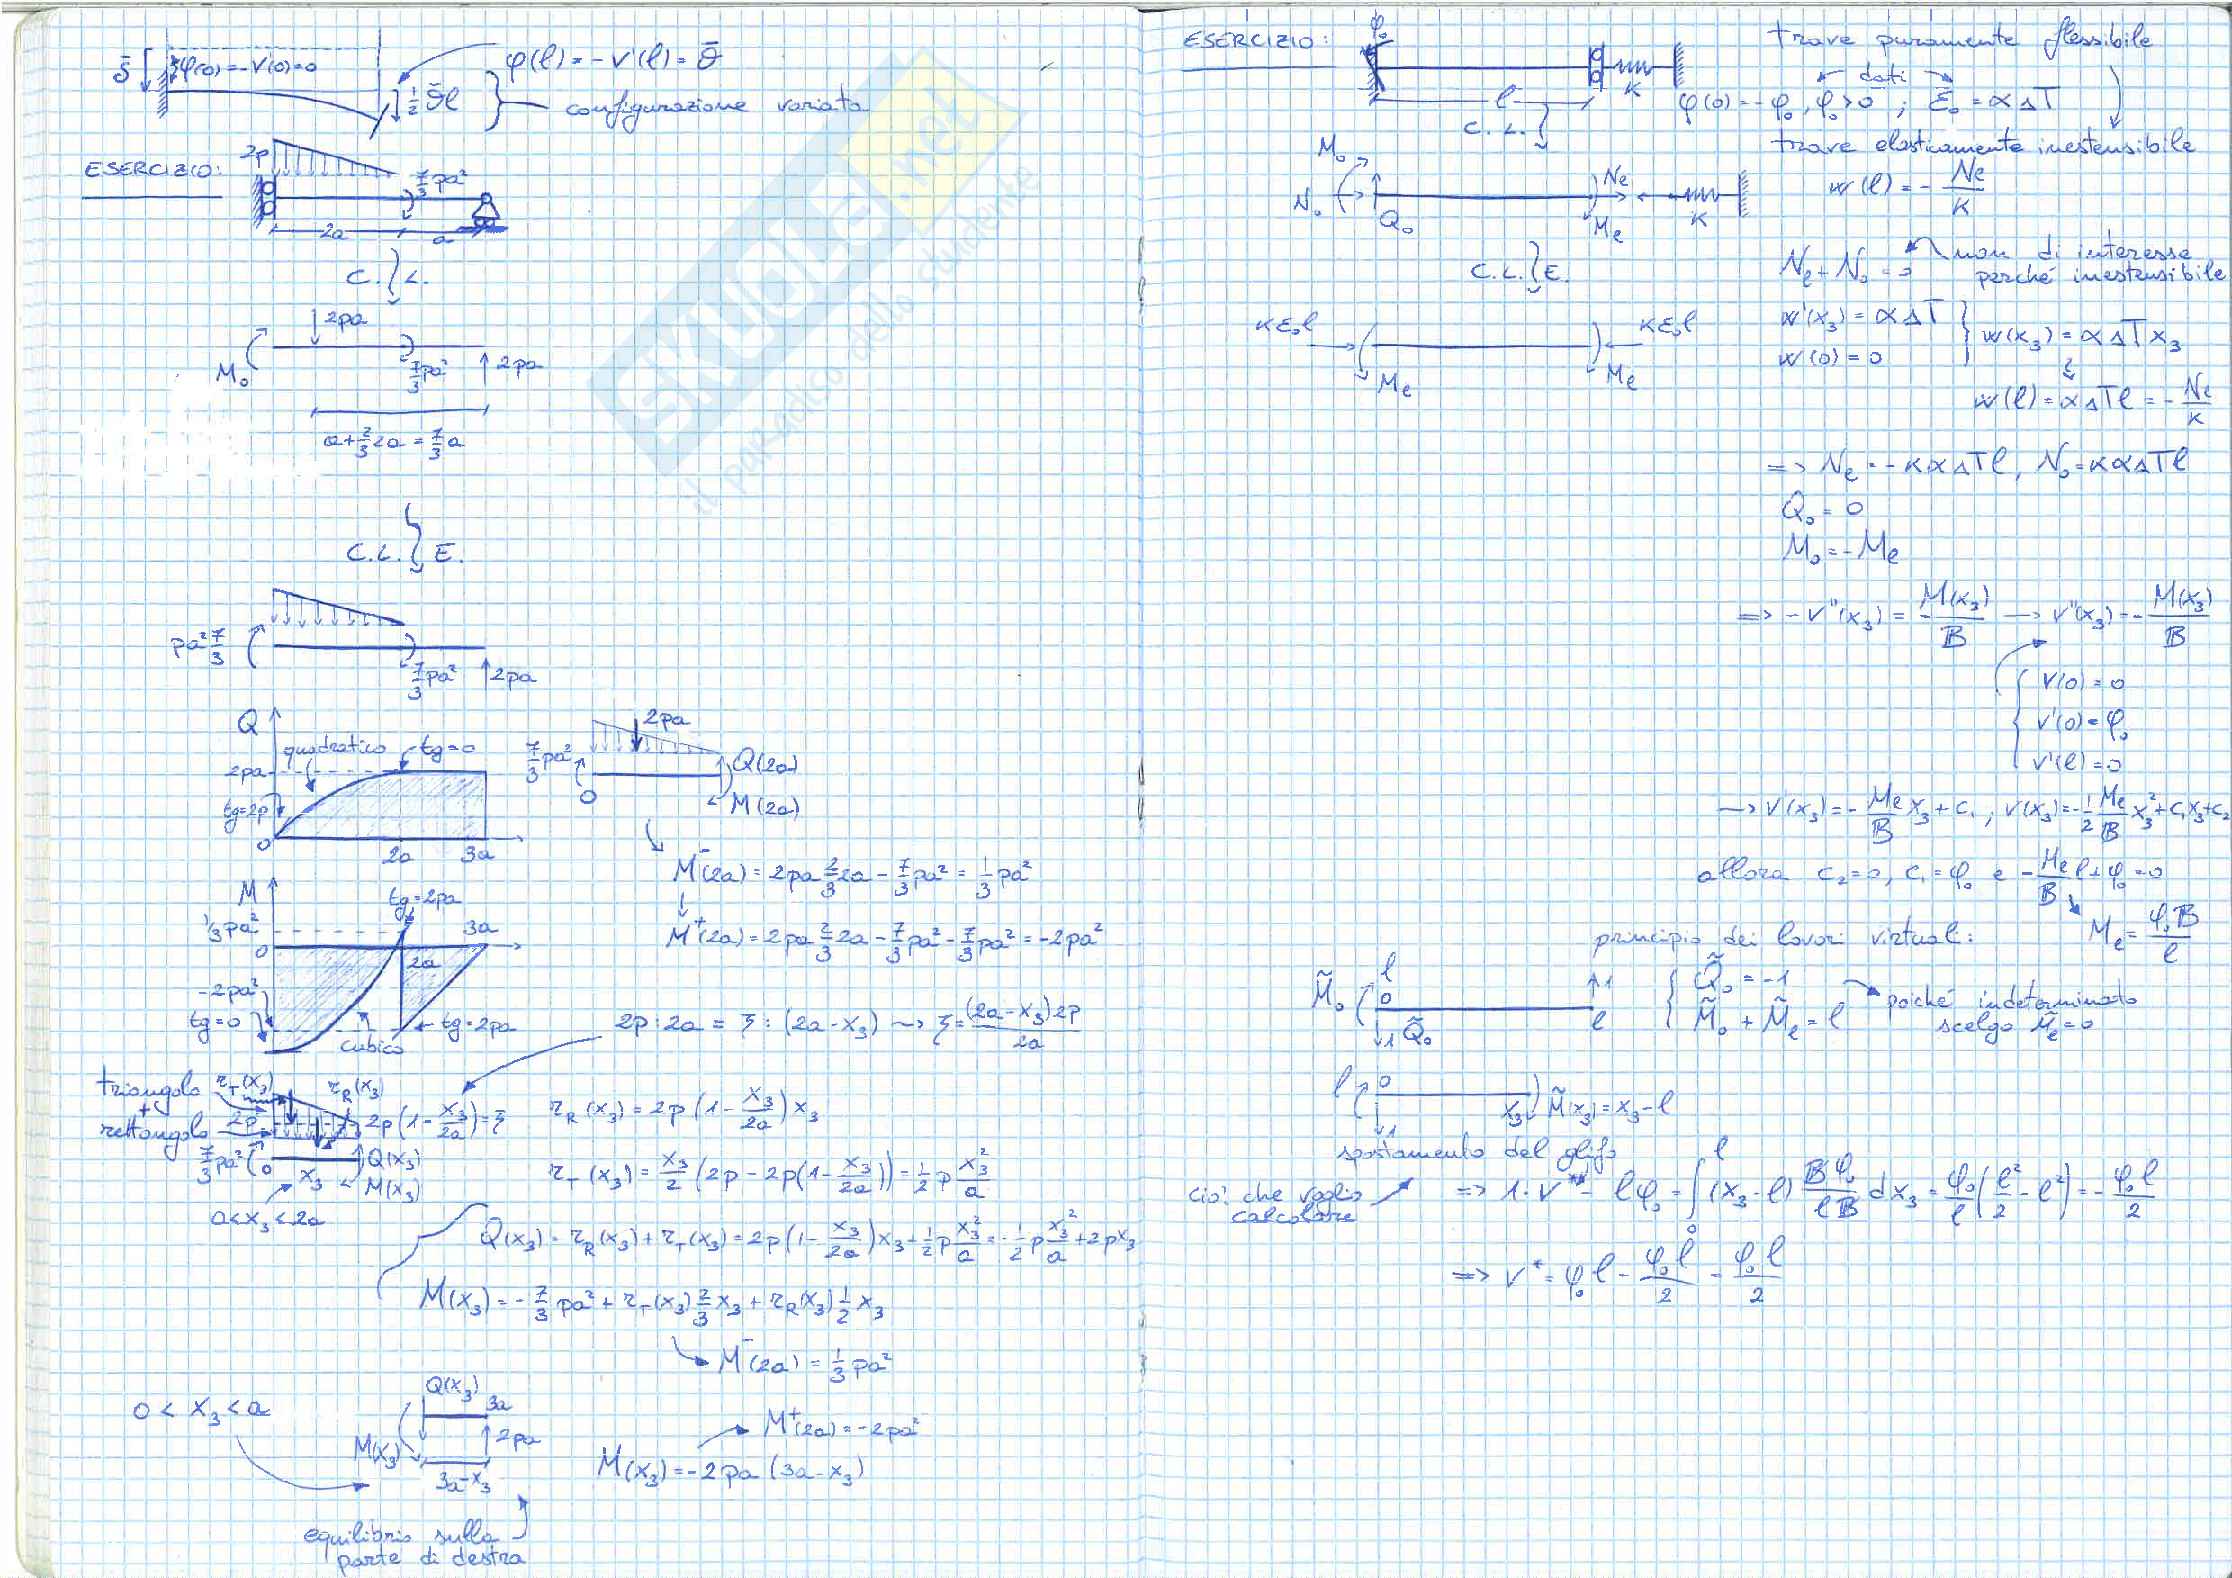 δ̄ φ(0)=-v'(0)=0
φ(l) = -v'(l) = ϑ̄
½ϑ̄l
configurazione variata
ESERCIZIO:
2p
7/3 pa²
2a a
C. L.
2pa
M₀ 7/3 pa² 2pa
a + 2/3 2a = 7/3 a
C.L. E.
pa² 7/3
7/3 pa² 2pa
Q
quadratico tg=0
2pa
tg=2p
0 2a 3a
2pa
7/3 pa² Q(2a)
0 M(2a)
M⁻(2a) = 2pa 2/3 2a - 7/3 pa² = 1/3 pa²
M⁺(2a) = 2pa 2/3 2a - 7/3 pa² - 7/3 pa² = -2pa²
M
tg=2pa
1/3 pa² 3a
0 2a
-2pa²
tg=0 tg=2pa
cubico
2p : 2a = ξ : (2a-x₃) → ξ = (2a-x₃)2p / 2a
triangolo + rettangolo
r_T(x₃) r_R(x₃)
2p 2p(1 - x₃/2a) = ξ
r_R(x₃) = 2p(1 - x₃/2a) x₃
7/3 pa² 0 x₃ Q(x₃) M(x₃)
r_T(x₃) = x₃/2 (2p - 2p(1 - x₃/2a)) = 1/2 p x₃²/a
0<x₃<2a
Q(x₃) = r_R(x₃) + r_T(x₃) = 2p(1 - x₃/2a)x₃ + 1/2 p x₃²/a = -1/2 p x₃²/a + 2px₃
M(x₃) = -7/3 pa² + r_T(x₃) 2/3 x₃ + r_R(x₃) 1/2 x₃
M⁻(2a) = 1/3 pa²
0 < x₃ < a
Q(x₃) 3a
M(x₃) 2pa
3a-x₃
M⁺(2a) = -2pa²
M(x₃) = -2pa (3a-x₃)
equilibrio sulla
parte di destra
SKUOLA.net
il paradiso dello studente
ESERCIZIO:
φ₀
l K
C. L.
trave puramente flessibile
dati
φ(0) = -φ₀, φ₀>0 ; ε₀ = αΔT
trave elasticamente inestensibile
w(l) = - Nₑ/K
M₀ N₀ Q₀ Nₑ Mₑ K
C.L. E.
Nₑ + N₀ = 0
non di interesse
perché inestensibile
Kε₀l Kε₀l
Mₑ Mₑ
w'(x₃) = αΔT
w(0) = 0
w(x₃) = αΔT x₃
w(l) = αΔTl = - Nₑ/K
=> Nₑ = -KαΔTl, N₀ = KαΔTl
Q₀ = 0
M₀ = -Mₑ
=> -v''(x₃) = M(x₃)/B → v''(x₃) = - M(x₃)/B
v(0) = 0
v'(0) = φ₀
v'(l) = 0
→ v(x₃) = - Mₑ/B x₃ + c₁ ; v(x₃) = -1/2 Mₑ/B x₃² + c₁x₃ + c₂
allora c₂=0, c₁=φ₀ e -Mₑ/B l + φ₀ = 0
Mₑ = φ₀B/l
principio dei lavori virtuali:
M̃₀ l 0 1 l 1 Q̃₀
Q̃₀ = -1
M̃₀ + M̃ₑ = l
poiché indeterminato
scelgo M̃ₑ=0
l 0 x₃ M̃(x₃) = x₃-l
1
spostamento del glifo
ciò che voglio
calcolare
=> 1·v* - lφ₀ = ∫₀ˡ (x₃-l) Bφ₀/lB dx₃ = φ₀/l (l²/2 - l²) = - φ₀l/2
=> v* = φ₀l - φ₀l/2 = φ₀l/2